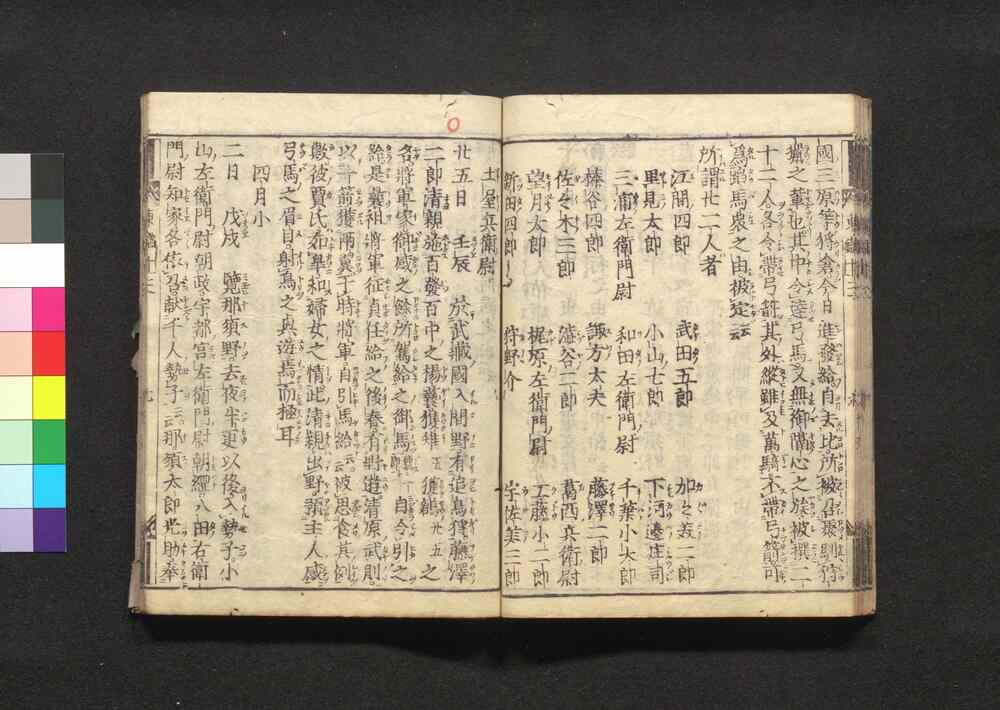 國三原等狩倉今日進發給自去比所被召聚馴狩
獵之輩也其中令達弓馬又無御隔心之族被撰二
十二人各令帶弓箭其外縱雖及萬騎不帶弓箭可
爲踏馬衆之由被定云云
所謂廿二人者
江間四郎 武田五郎 加々美二郎
里見太郎 小山七郎 下河邊庄司
三浦左衛門尉 和田左衛門尉 千葉小太郎
榛谷四郎 諏方太夫 藤澤二郎
佐々木三郎 澁谷二郎 葛西兵衛尉
望月太郎 梶原左衛門尉 工藤小二郎
新田四郎 狩野介 宇佐美三郎
土屋兵衛尉
廿五日 壬辰 於武藏國入間野有追鳥狩藤澤
二郎清親施百發百中之揚藝獲雉五獲鶬廿五之
各將軍家御感之餘所駕給之御馬 自令引之
給是曩祖將軍征貞任給之後春有 遺清原武則
以一箭獲兩翼于時將軍自引馬給云彼思食其例
歟彼賈氏 皐如婦女之情此清親出野顯主人感
弓馬之眉目射鳥之興遊焉而極耳
四月小
二日 戊戌 覽那須野去夜半更以後入勢子小
山左衛門尉朝政宇都宮左衛門尉朝綱八田右衛
門尉知家各依召献千人勢子云云那須太郎光助奉